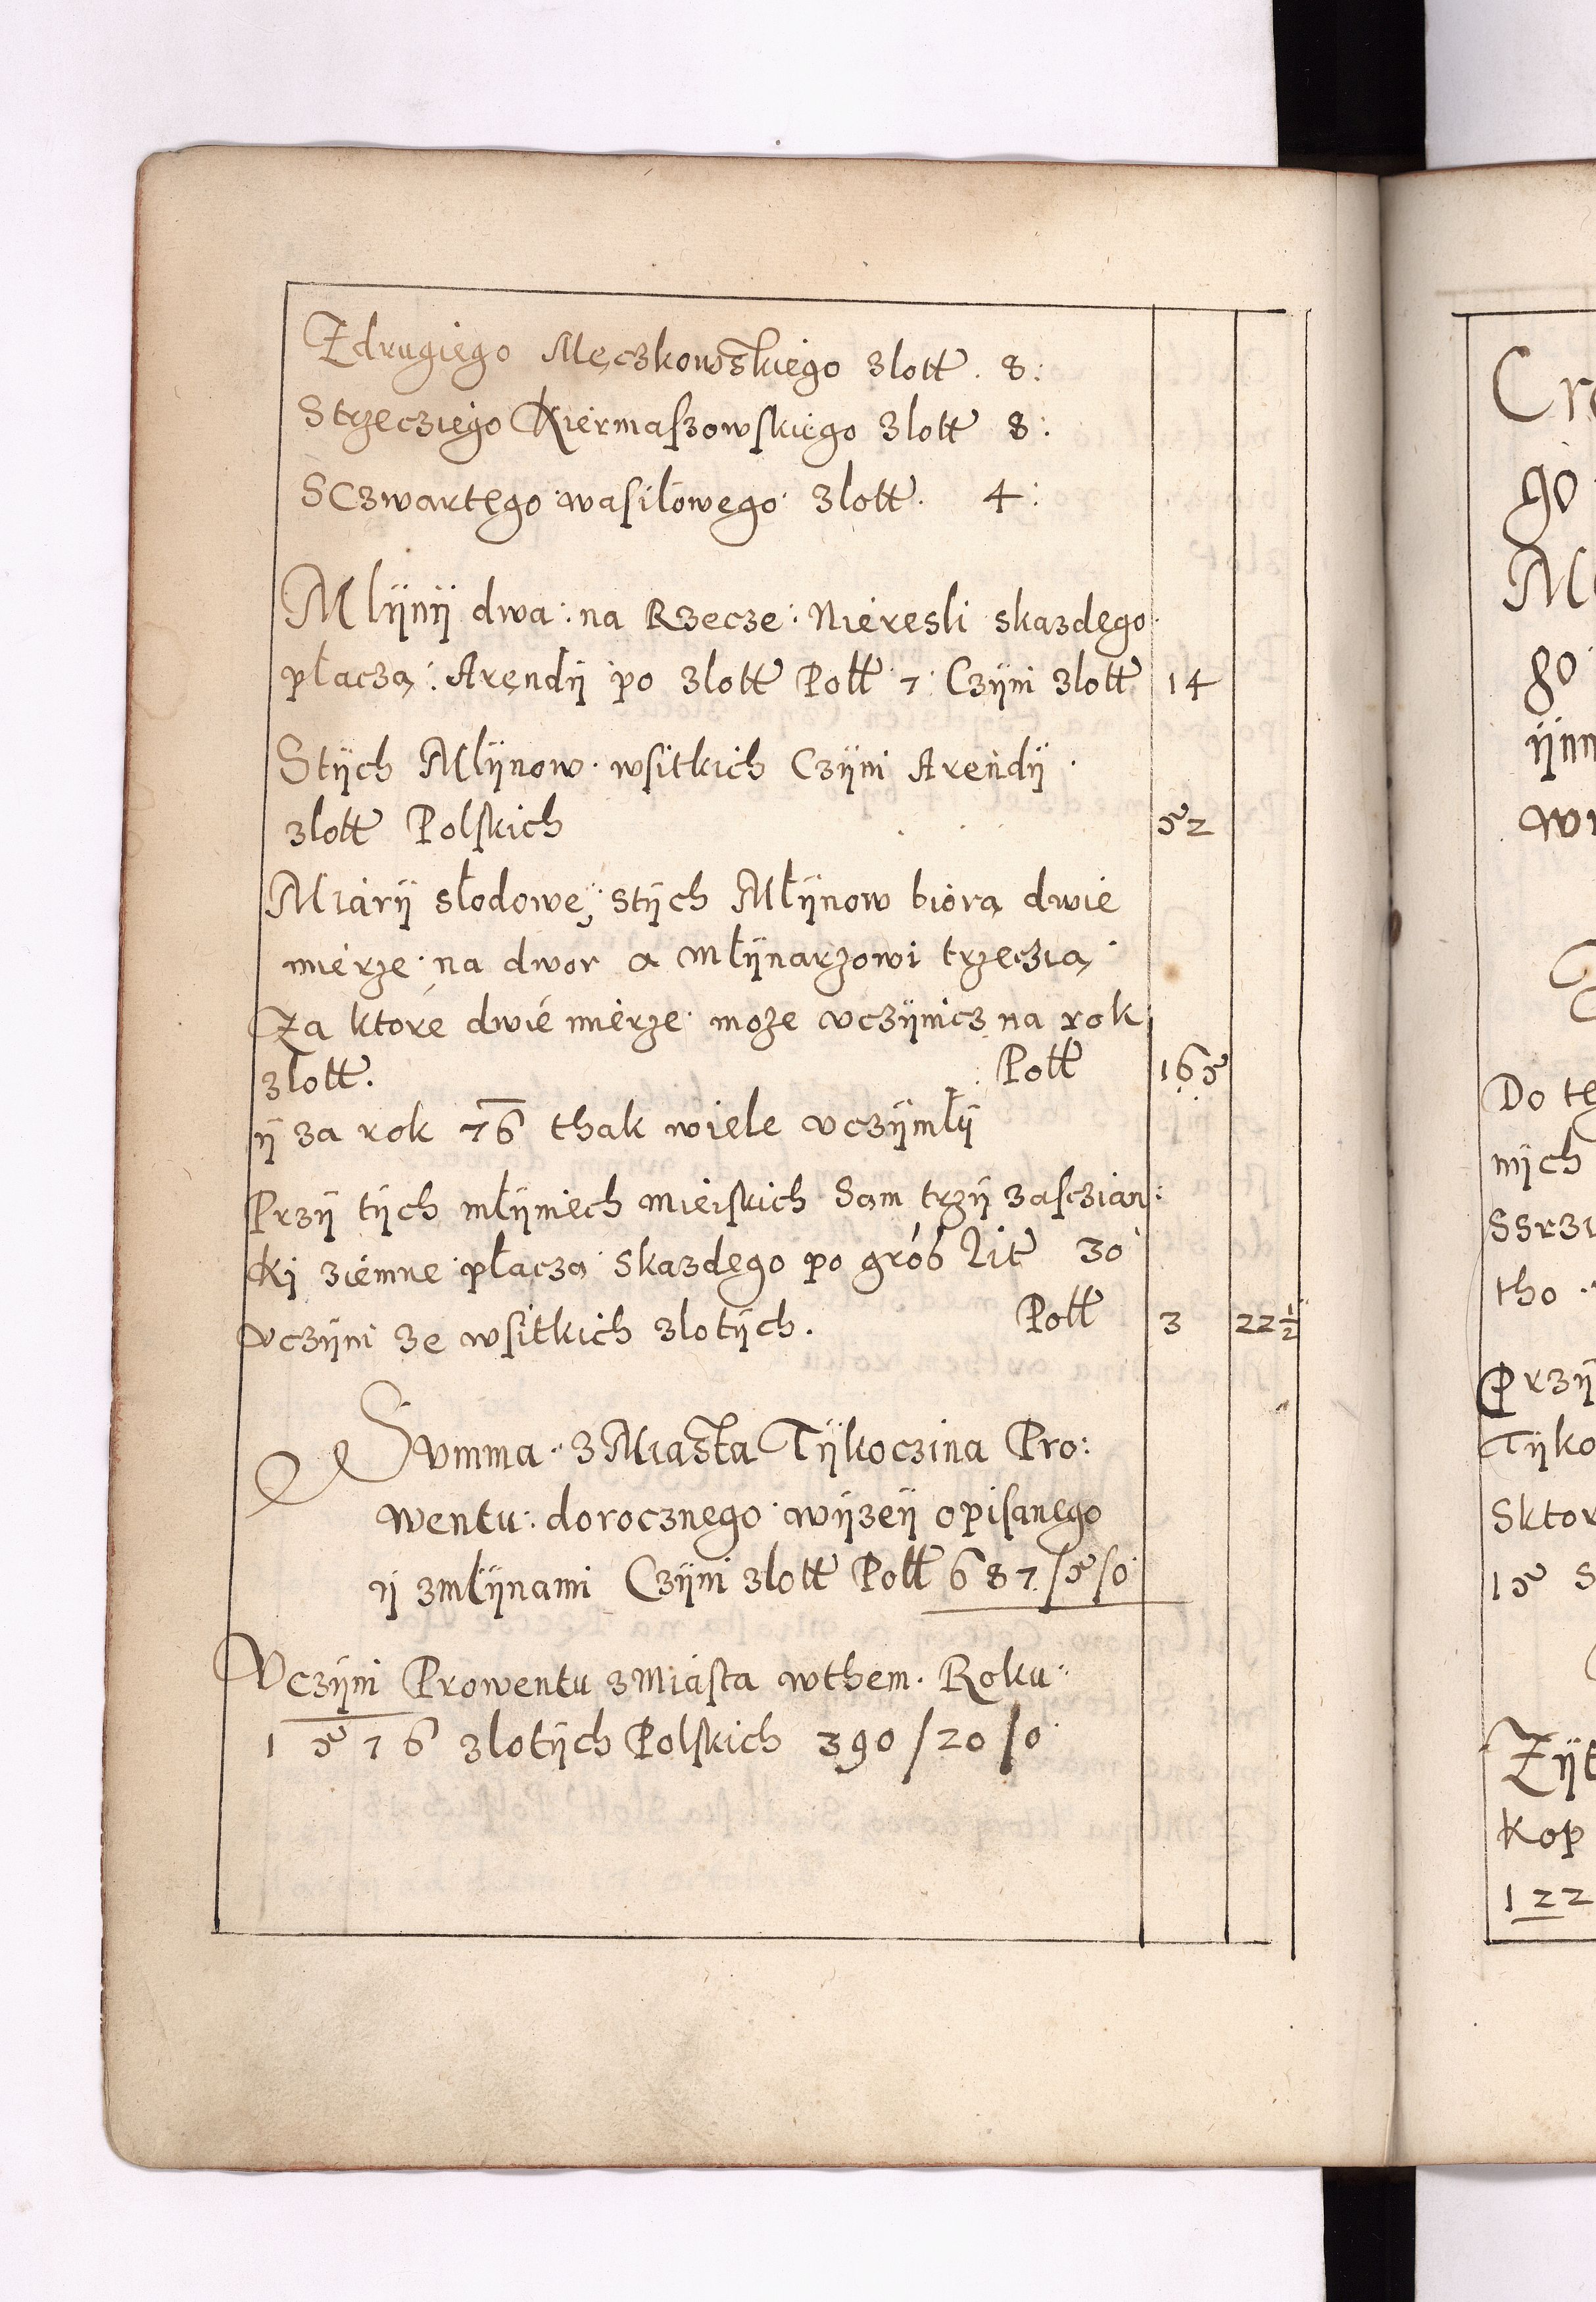 Zdrugiego Męczkowskiego złott. 8:
Strzecziego Kiermaszowskiego złott 8:
SCzwartego wasiłowego złott. 4:
Młÿnÿ dwa: na Rzecze: Nieresli skazdego
płaczą: Arendÿ po złott Poll 7 Czÿni złott 14
Stÿch Młÿnow wsitkich Czÿni Arendÿ
złott Polskich 52
Miarÿ słodowe stÿch Młÿnow biorą dwie
mierze na dwor a młÿnarzowi trzeczią
Za ktore dwie mierze moze vczÿnicz na rok
złott. Poll 165
ÿ za rok 76 thak wiele vczÿnilÿ
Przÿ tÿch młÿniech mieiskich Sam trzÿ zasczian:
ki ziemne płacza skazdego po gros Lit 30
vczÿni ze wsitkich złotÿch. Poll 3 22½
Summa z Miasta Tÿkoczina Pro:
wentu: dorocznego wÿzeÿ opisanego
ÿ zmłÿnami Czÿni złott Poll 687/5/0
Vczÿni Prowentu zmiasta wthem Roku
1576 złotÿch Polskich 390/20/0
go
go
Do
mich
tho
Przÿ
Tÿko
Sktor
15 S
Zÿt
kop
122